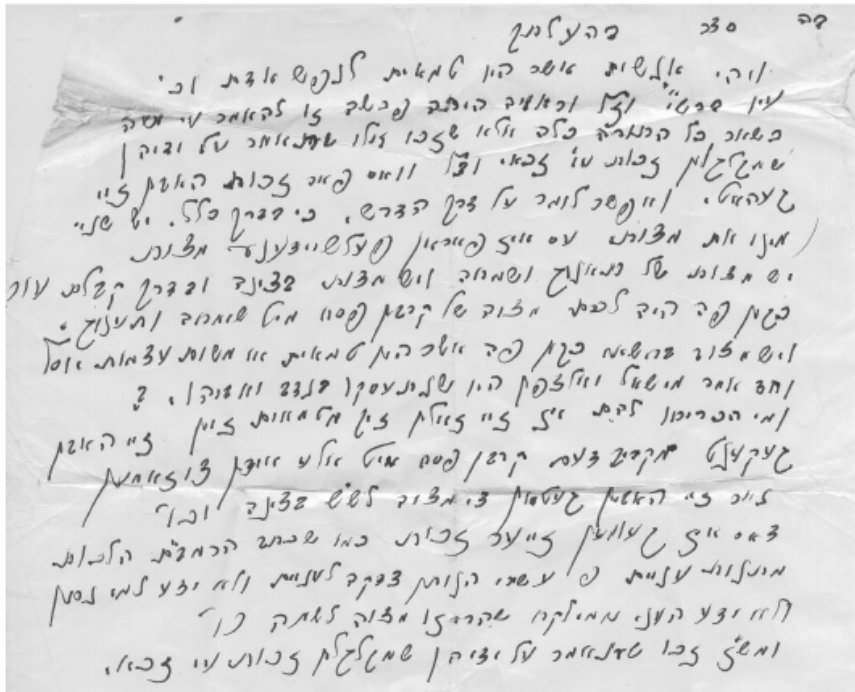 בה סדר בהעלתך
ויהי אנשים אשר היו טמאים לנפש אדם וכ'
עיין פרש"י וז"ל וראויה היתה פרשה זו להאמר ע"י משה
כשאר כל התורה כלה אלא שזכו אלו שתאמר על ידיהן
שמגלגלין זכות ע"י זכאי וצ"ל וואס פאר זכות האבן זיי
געהאט. ואפשר לומר על דרך הדרש. כי בדרך כלל יש שני
מינו את מצות. עס איז פאראן פערשיידענע מצות.
יש מצות של תענוג ושמחה ויש מצות בצינה ובדרך קבלת עול
כגון פה היה להם מצוה של קרבן פסח מיט שמחה ותענוג.
ויש מצוה ברשימ כגון פה אשר היו טמאים או משום עצמות יוסף
וחד אמר מישאל ואלצפן היו שנתעסקו בנדב ואביהו. ?
ומי הכריחו להם איז זיי זאלן זיך מטמאות זיין זיי האבן
געקענט מקריב דעם קרבן פסח מיט אלע אידן צוזאמען
נאר זיי האבין געטאן די מצוה לש"ש בצינה וכו'
דאס איז געווען זייער זכות כמו שכתב הרמב"ם הלכות
מתנות עניים פ' עשרי הנותן צדקה לעניים ולא ידע למי נתן
ולא ידע העני ממי לקח שהרי זו מצוה לשמה כו'
ומש"ז זכו שתאמר על ידיהן שמגלגלין זכות ע"י זכאי.